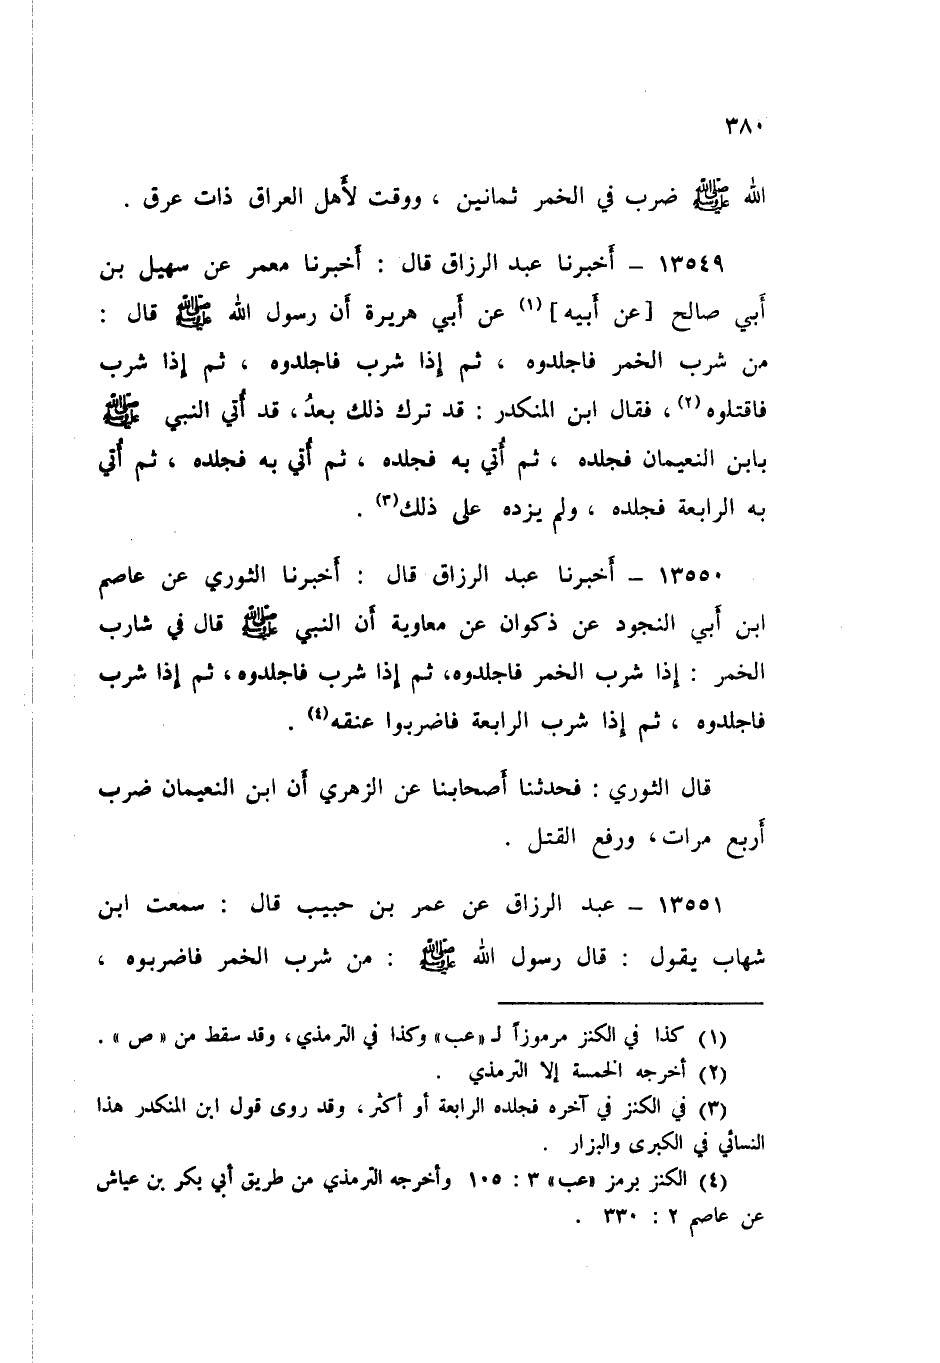 ٣٨٠
الله ﷺ ضرب في الخمر ثمانين ، ووقت لأهل العراق ذات عرق .
١٣٥٤٩ – أخبرنا عبد الرزاق قال : أخبرنا معمر عن سهيل بن
أبي صالح [عن أبيه](١) عن أبي هريرة أن رسول الله ﷺ قال :
من شرب الخمر فاجلدوه ، ثم إذا شرب فاجلدوه ، ثم إذا شرب
فاقتلوه(٢)، فقال ابن المنكدر : قد ترك ذلك بعدُ، قد أُتي النبي ﷺ
بابن النعيمان فجلده ، ثم أُتي به فجلده ، ثم أُتي به فجلده ، ثم أُتي
به الرابعة فجلده ، ولم يزده على ذلك(٣) .
١٣٥٥٠ – أخبرنا عبد الرزاق قال : أخبرنا الثوري عن عاصم
ابن أبي النجود عن ذكوان عن معاوية أن النبي ﷺ قال في شارب
الخمر : إذا شرب الخمر فاجلدوه، ثم إذا شرب فاجلدوه، ثم إذا شرب
فاجلدوه ، ثم إذا شرب الرابعة فاضربوا عنقه(٤) .
قال الثوري : فحدثنا أصحابنا عن الزهري أن ابن النعيمان ضرب
أربع مرات، ورفع القتل .
١٣٥٥١ – عبد الرزاق عن عمر بن حبيب قال : سمعت ابن
شهاب يقول : قال رسول الله ﷺ : من شرب الخمر فاضربوه ،
(١) كذا في الكنز مرموزاً لـ «عب» وكذا في الترمذي، وقد سقط من « ص » .
(٢) أخرجه الخمسة إلا الترمذي .
(٣) في الكنز في آخره فجلده الرابعة أو أكثر، وقد روى قول ابن المنكدر هذا
النسائي في الكبرى والبزار .
(٤) الكنز برمز «عب» ٣ : ١٠٥ وأخرجه الترمذي من طريق أبي بكر بن عياش
عن عاصم ٢ : ٣٣٠ .